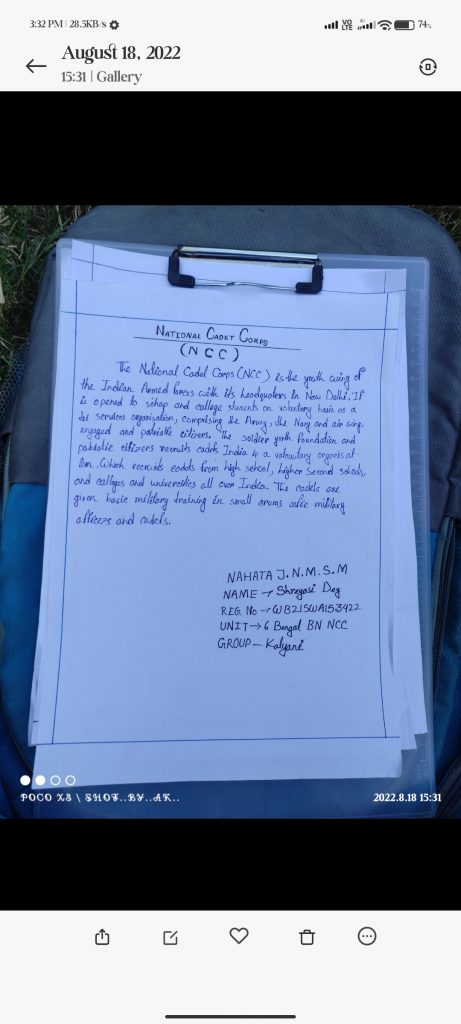 3:32 PM | 28.5KB/s
VO LTE 4G 74%
August 18, 2022
15:31 | Gallery
NATIONAL CADET CORPS
(NCC)
The National Cadet Corps (NCC) is the youth wing of
the Indian Armed forces with its headquaters in New Delhi. If
is opened to school and college students on voluntary basis as a
services organisation, comprising the Army, the Navy and air wing,
engaged and patriotic citizens. The soldier youth foundation and
patriotic citizers recruits cadets India is a voluntary organisat
ion. Which recruits cadets from high school, higher Second schools,
and colleges and univercities all over India. The cadets are
given basic military training in small arams military
officers and cadets.
NAHATA J.N.M.S.M
NAME → Shreyosi Dey
REG No → WB21SWA153422
UNIT → 6 Bengal BN NCC
GROUP – Kalyani
POCO X3 \ SHOT..BY..AK..
2022.8.18 15:31